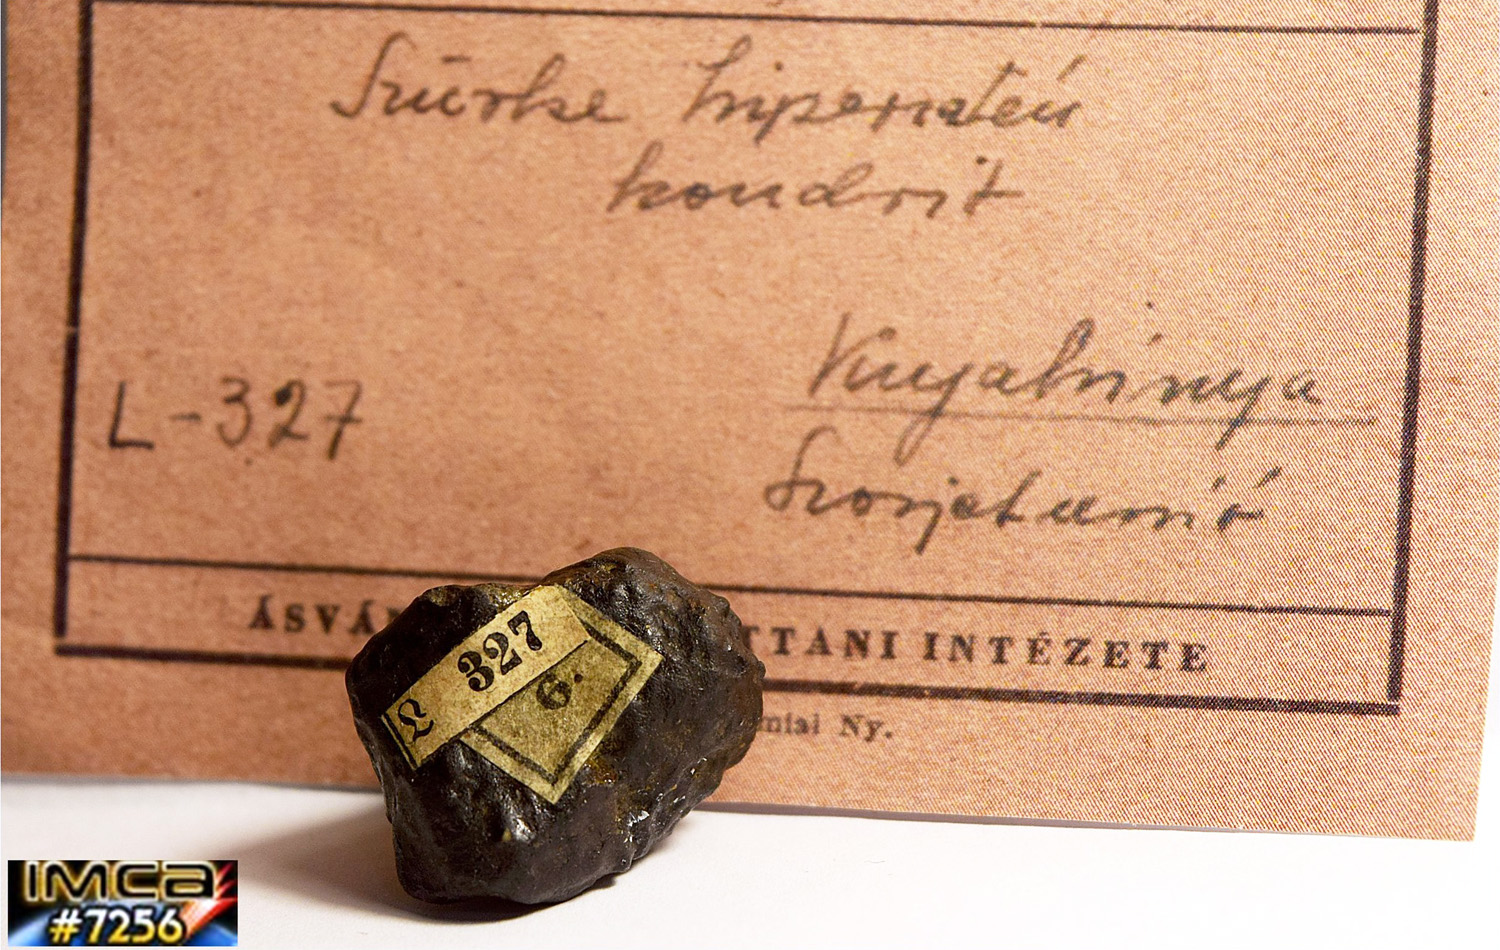 Szürke hipersztén
kondrit
L-327
Knyahinya
Szovjetunió
ÁSVÁ TTANI INTÉZETE
miai Ny.
L 327
6.
IMCA
#7256